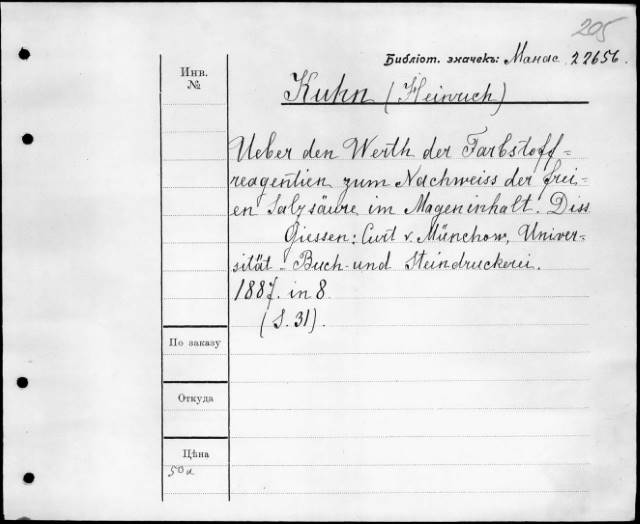 205
Библіот. значекъ: Манас. 27656.
Инв. №
Kuhn (Heinrich)
Ueber den Werth der Farbstoff=
reagentien zum Nachweiss der frei=
en Salzsäure im Mageninhalt. Diss
Giessen: Curt v. Münchow, Univer=
sität - Buch- und Steindruckerei.
1887. in 8
(S. 31).
По заказу
Откуда
Цѣна